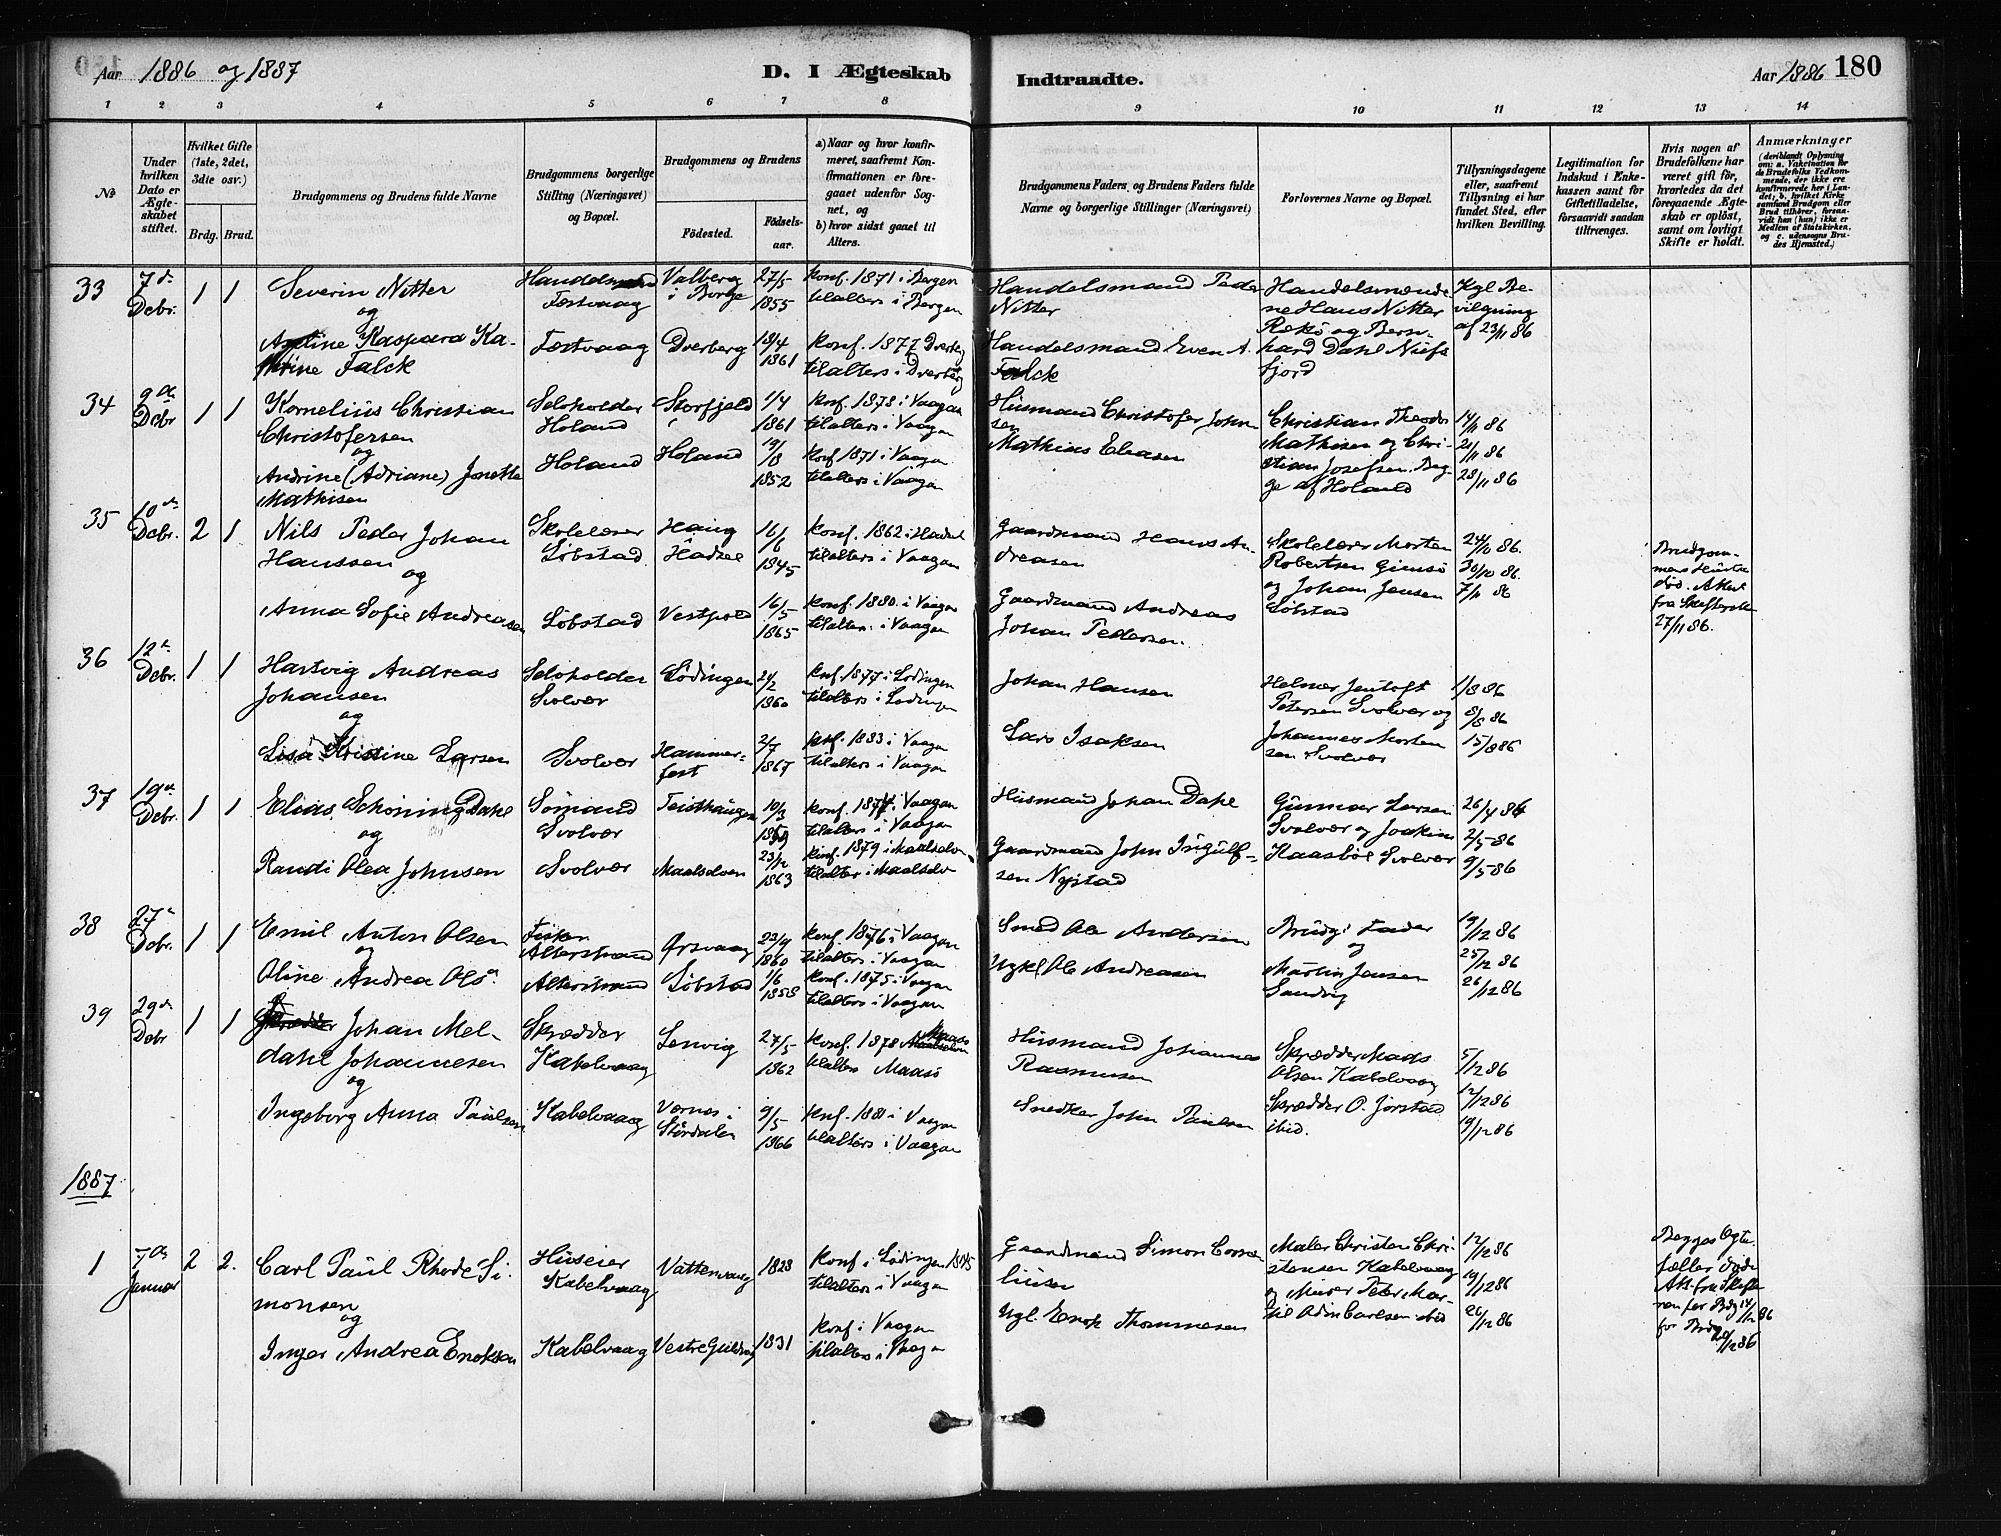 Aar 1886 og 1887
D. I Ægteskab
Indtraadte.
Aar 1886 180
1 2 3 4 5 6 7 8 9 10 11 12 13 14
No
Under hvilken Dato er Ægteskabet stiftet.
Hvilket Gifte (1ste, 2det, 3die osv.)
Brdg. Brud.
Brudgommens og Brudens fulde Navne
Brudgommens borgerlige Stilling (Næringsvei) og Bopæl.
Brudgommens og Brudens
Födested.
Födselsaar.
a) Naar og hvor konfirmeret, saafremt Konfirmationen er foregaaet udenför Sognet, og
b) hvor sidst gaaet til Alters.
Brudgommens Faders, og Brudens Faders fulde Navne og borgerlige Stillinger (Næringsvei)
Forlovernes Navne og Bopæl.
Tillysningsdagene eller, saafremt Tillysning ei har fundet Sted, efter hvilken Bevilling.
Legitimation for Indskud i Enkekassen samt for Giftetilladelse, forsaavidt saadan tiltrænges.
Hvis nogen af Brudefolkene har været gift før, hvorledes da det foregaaende Ægteskab er oplöst, samt om lovligt Skifte er holdt.
Anmærkninger
(deriblandt Oplysning om: a. Vakcination for de Brudefolks Vedkommende, der ikke ere konfirmerede her i Landet; b. hvilket Kirkesamfund Brudgom eller Brud tilhører, forsaavidt han (hun) ikke er Medlem af Statskirken, og c. udensogns Brudes Hjemsted.)
33 7de Debr. 1 1
Severin Nitter
og
Kaspara Katrine Falck
Festvaag
Valberg i Borge
27/5 1855
konf. 1871 i Bergen
tilalters i Bergen
Handelsmand Peder Nitter
Handelsmændene Hans Nitter
og Bernhard Dahl
Kgl Bevilgning af 23/11 86
Festvaag
Dverberg
18/4 1861
konf. 1877 Dverberg
tilalters i Dverberg
Handelsmand Even A. Falck
34 9de Debr 1 1
Kornelius Christian
Christofersen
og
Andrine (Adriane) Jonette
Mathisen
Selvholder
Holand
Storfjeld
1/4 1861
konf. 1878 i Vaagan
tilalters i Vaagan
Husmand Christofer Johnsen
Christian Theodor
Mathisen og Christian Josefsen. Begge af Holand
14/11 86
21/11 86
28/11 86
Holand
Holand
19/8 1852
konf. 1871 i Vaagan
tilalters i Vaagan
Mathias Eliasen
35 10de Debr. 2 1
Nils Peder Johan
Hanssen
og
Anna Sofie Andreasen
Skolelærer
Löbstad
Haug
Hadsel
16/6 1845
konf. 1862 i Hadsel
tilalters i Vaagan
Gaardmand Hans Andreasen
Skolelærer Morten
Robertsen Gimsö
og Johan Jensen
Löbstad
24/10 86.
30/10 86.
7/11 86
Brudgommens Hustru
död. Attest
fra Skifteretten
27/11 86.
Löbstad
Vestpold
16/5 1865
konf. 1880. i Vaagan
tilalters i Vaagan
Gaardmand Andreas
Johan Pedersen.
36 12te Debr. 1 1
Hartvig Andreas
Johansen
og
Lisa Kristine Larsen
Selvholder
Svolvær
Lödingen
21/2 1860
konf. 1877 i Lödingen
tilalters i Lödingen
Johan Hansen
Helmer Jentoft
Petersen Svolvær og
Johannes Mortensen Svolvær
1/8 86
8/8 86
15/8 86
Svolvær
Hammerfest
2/7 1867
konf. 1883 i Vaagan
tilalters i Vaagan
Lars Isaksen
37 19de Debr. 1 1
Elias Schöning Dahl
og
Randi Olea Johnsen
Sömand
Svolvær
Teisthaugen
10/3
konf. 1874 i Vaagan
tilalters i Vaagan
Husmand Johan Dahl
Gunnar Larsen
Svolvær og Joakim
Kaasböl Svolvær
26/4 86
2/5-86
9/5-86
Svolvær
Maalselven
23/12 1863
konf. 1879 i Maalselven
tilalter i Maalselv
Gaardmand John Ingulfsen Nystad
38 27de Debr. 1 1
Emil Anton Olsen
og
Oline Andrea Olsa
Fisker
Alterstrand
Örsvaag
23/9 1860
konf. 1876 i Vaagan
tilalters i Vaagan
Smed Ole Andersen
Brudg. Fader
og
Martin Jensen
Sandvig
19/12 86
25/12 86
26/12 86
Alterstrand
Löbstad
1/6 1858
konf. 1875 i Vaagan
tilalters i Vaagan
Ugkl Ole Andreasen
39 29de Debr 1 1
Johan Meldahl Johannesen
og
Ingeborg Anna Paulsen
Skrædder
Kabelvaag
Lenvig
27/5 1862
konf. 1878 Maasö
tilalters Maasö
Husmand Johannes
Rasmusen
Skrædder Mads
Olsen Kabelvaag
Skrædder O. Jörstad
ibid.
5/12 86
12/12 86
19/12 86
Kabelvaag
Vernes i
Stördalen
9/5 1866
konf. 1881 i Vaagan
tilalters i Vaagan
Snedker John Paulsen
1887
1 7de Januar 2 2.
Carl Paul Rhode Simonsen
og
Inger Andrea Enoksen
Huseier
Kabelvaag
Vattervaag
1828
konf i Lödingen 1845
tilalters i Vaagan
Gaardmand Simon Corneliusen
Maler Christen Christensen Kabelvaag
og Murer Peter Martil Adin Carlsen ibid
12/12 86
19/12 86
26/12 86
Begges Ægtefæller döde
Att. fra Skifteretten for Brdg 14/12 86
for Brud 20/12 86
Kabelvaag
1831
konf i Vaagan
tilalters i Vaagan
Ugl. Enok Thommesen